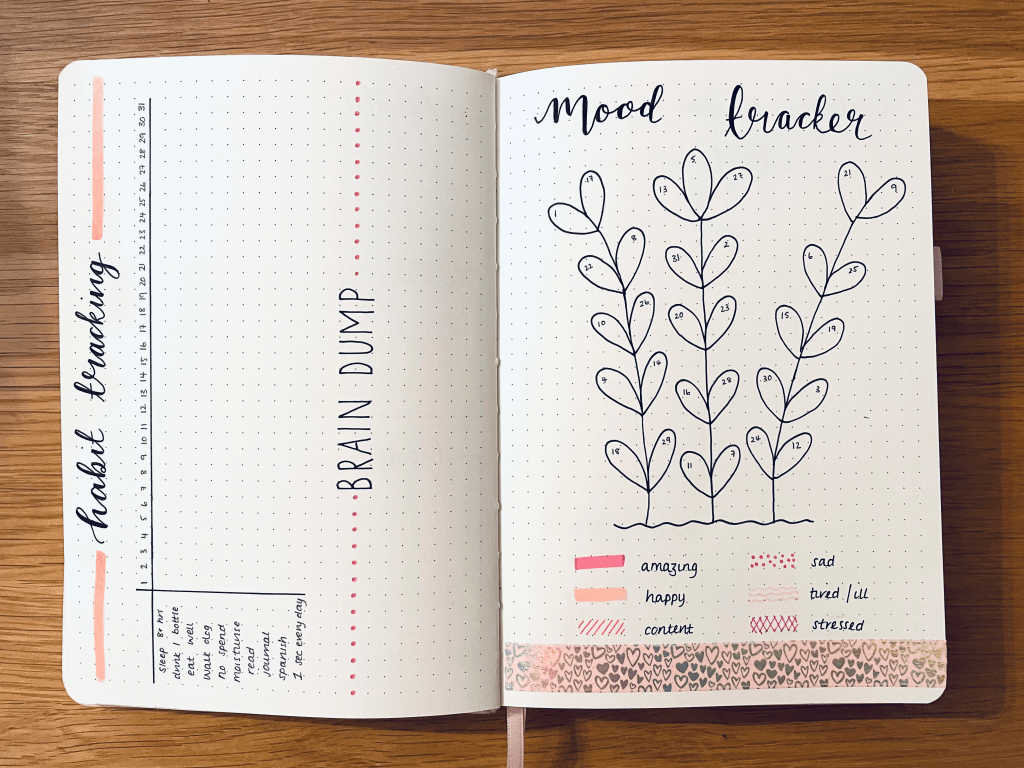 habit tracking
1 2 3 4 5 6 7 8 9 10 11 12 13 14 15 16 17 18 19 20 21 22 23 24 25 26 27 28 29 30 31
Sleep 8+ hrs
drink 1 bottle
eat well
walk dog
no spend
moisturise
read
journal
spanish
1 sec every day
BRAIN DUMP
mood tracker
1
17
22
8
10
26
4
14
18
29
13
5
27
31
2
20
23
16
28
11
7
21
9
6
25
15
19
30
3
24
12
amazing
happy
content
sad
tired / ill
stressed